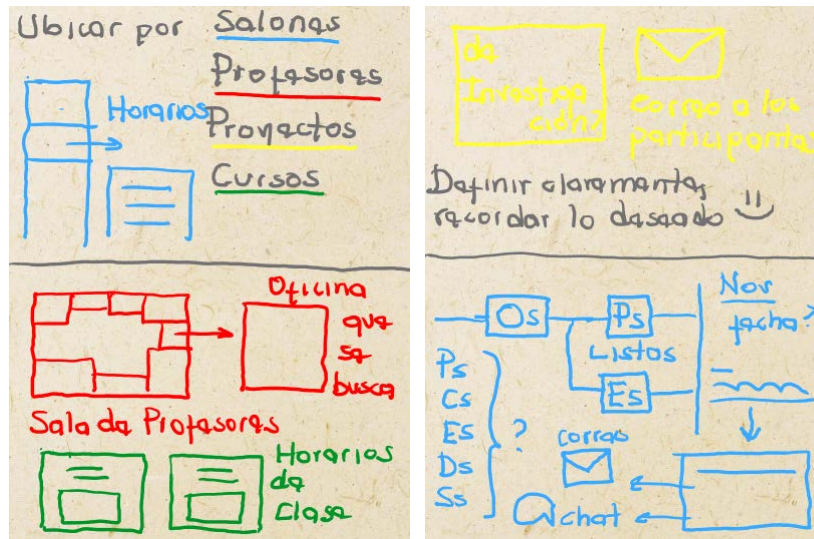 Ubicar por
Salones
Profesores
Proyectos
Cursos
Horarios
Oficina
que
se
busca
Sala de Profesores
Horarios
de
Clase
de
Investiga
ción?
correo a los
participantes
Definir claramente,
recordar lo deseado
Os
Ps
Listos
Es
Nov
fecha?
Ps
Cs
Es
Ds
Ss
?
correo
chat